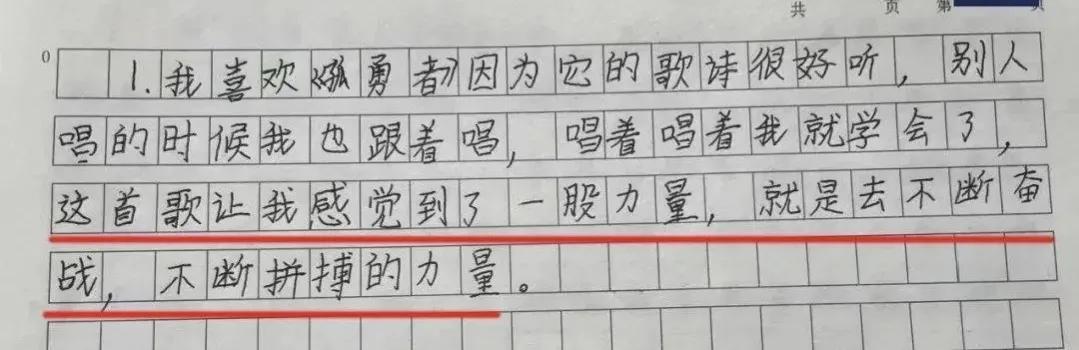 共 页 第 页
0
1.我喜欢《孤勇者》因为它的歌诗很好听，别人
唱的时候我也跟着唱，唱着唱着我就学会了，
这首歌让我感觉到了一股力量，就是去不断奋
战，不断拼搏的力量。